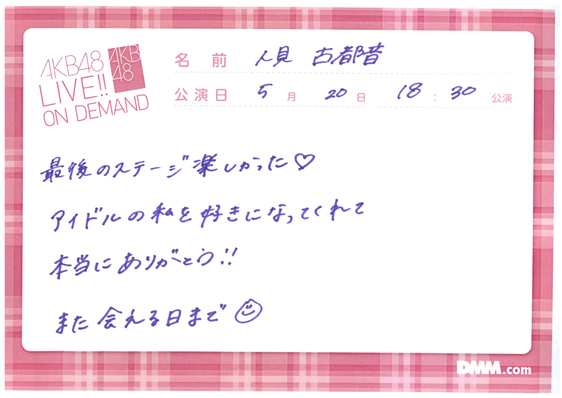 AKB48
LIVE!!
ON DEMAND
AKB
48
名前 人見 古都音
公演日 5月 20日 18:30 公演
最後のステージ楽しかった♡
アイドルの私を好きになってくれて
本当にありがとう!!
また会える日まで☺
DMM.com